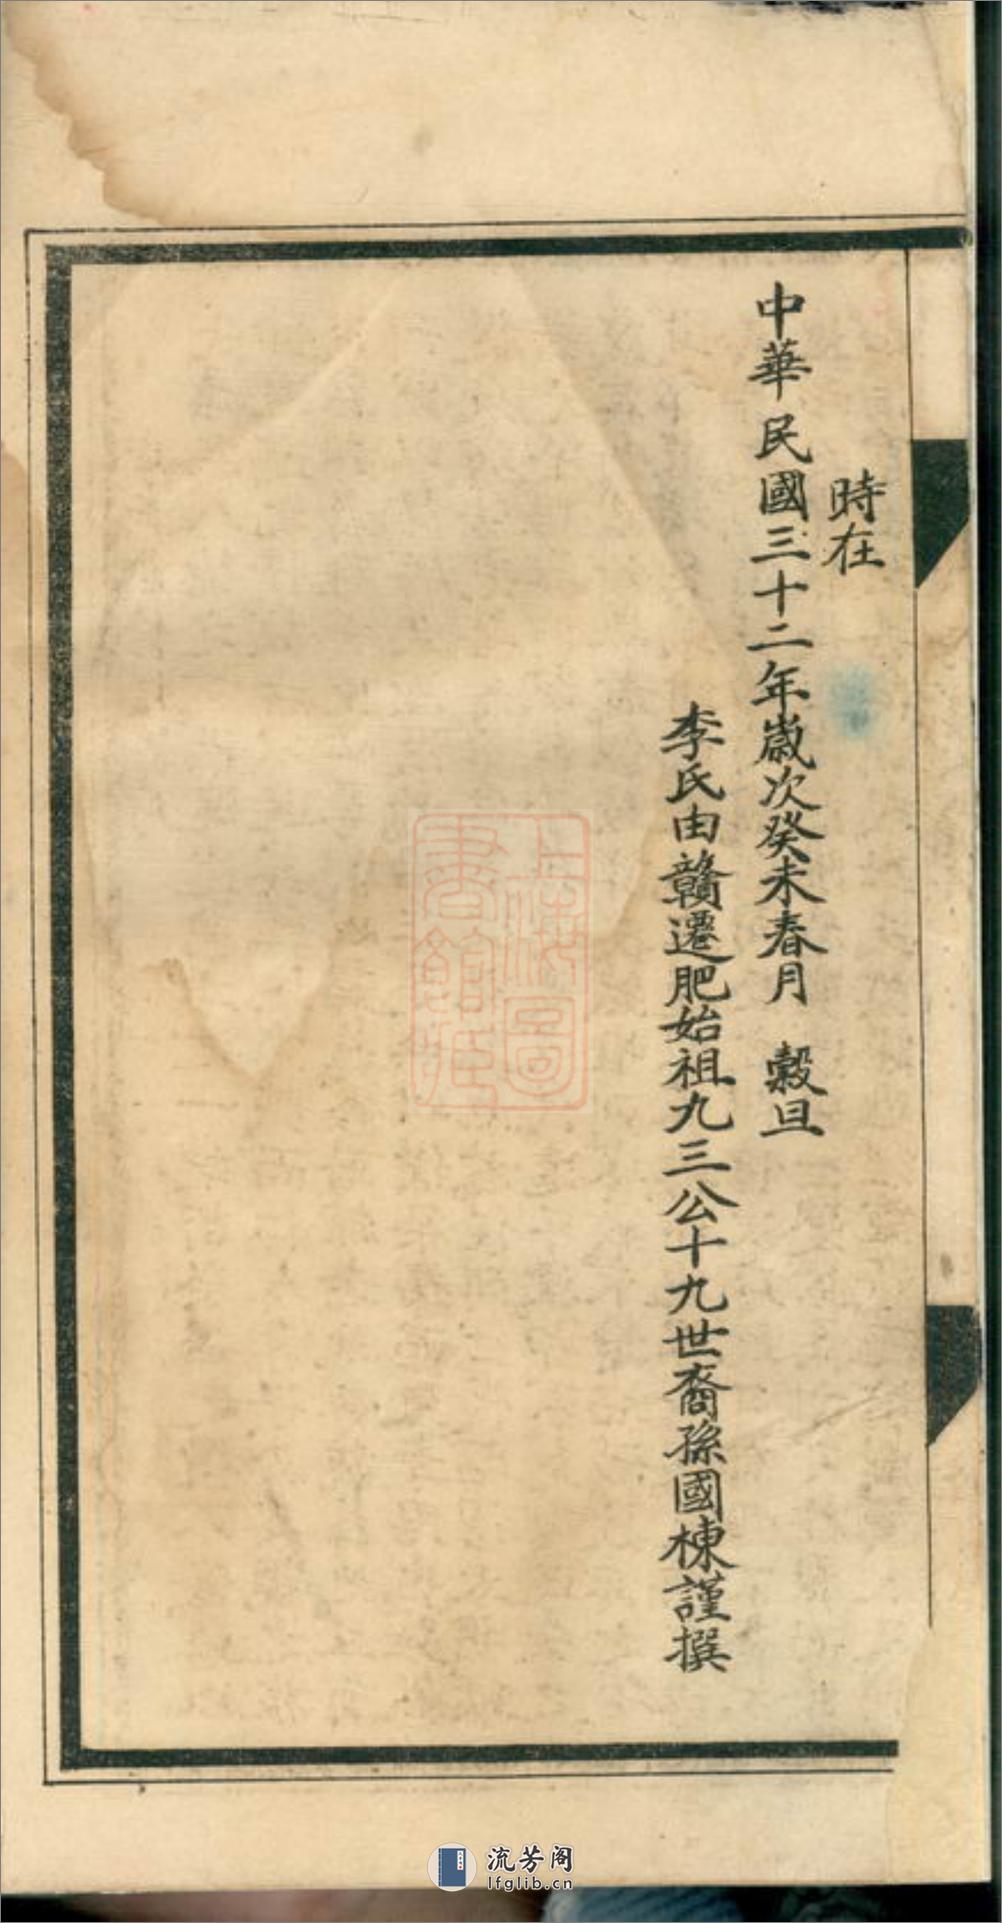 時在
中華民國三十二年歲次癸未春月 穀旦
李氏由贛遷肥始祖九三公十九世裔孫國棟謹撰
上海圖
書館藏
流芳阁
lfglib.cn